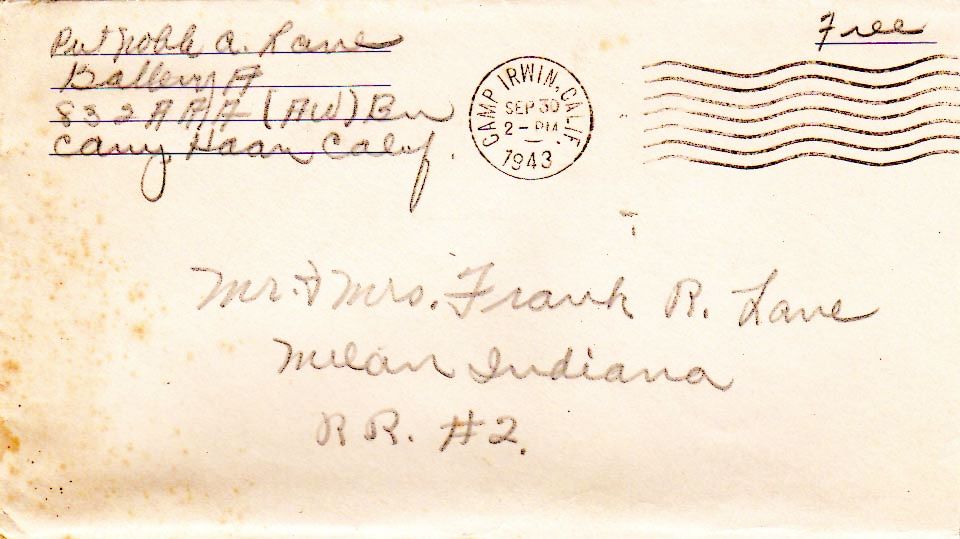 Pvt Noble A. Lane
Battery A
832 AAA (AW) Bn
Camp Haan Calif.
Free
CAMP IRWIN, CALIF.
SEP 30
2 - PM
1943
Mr. & Mrs. Frank R. Lane
Milan Indiana
R R. #2.